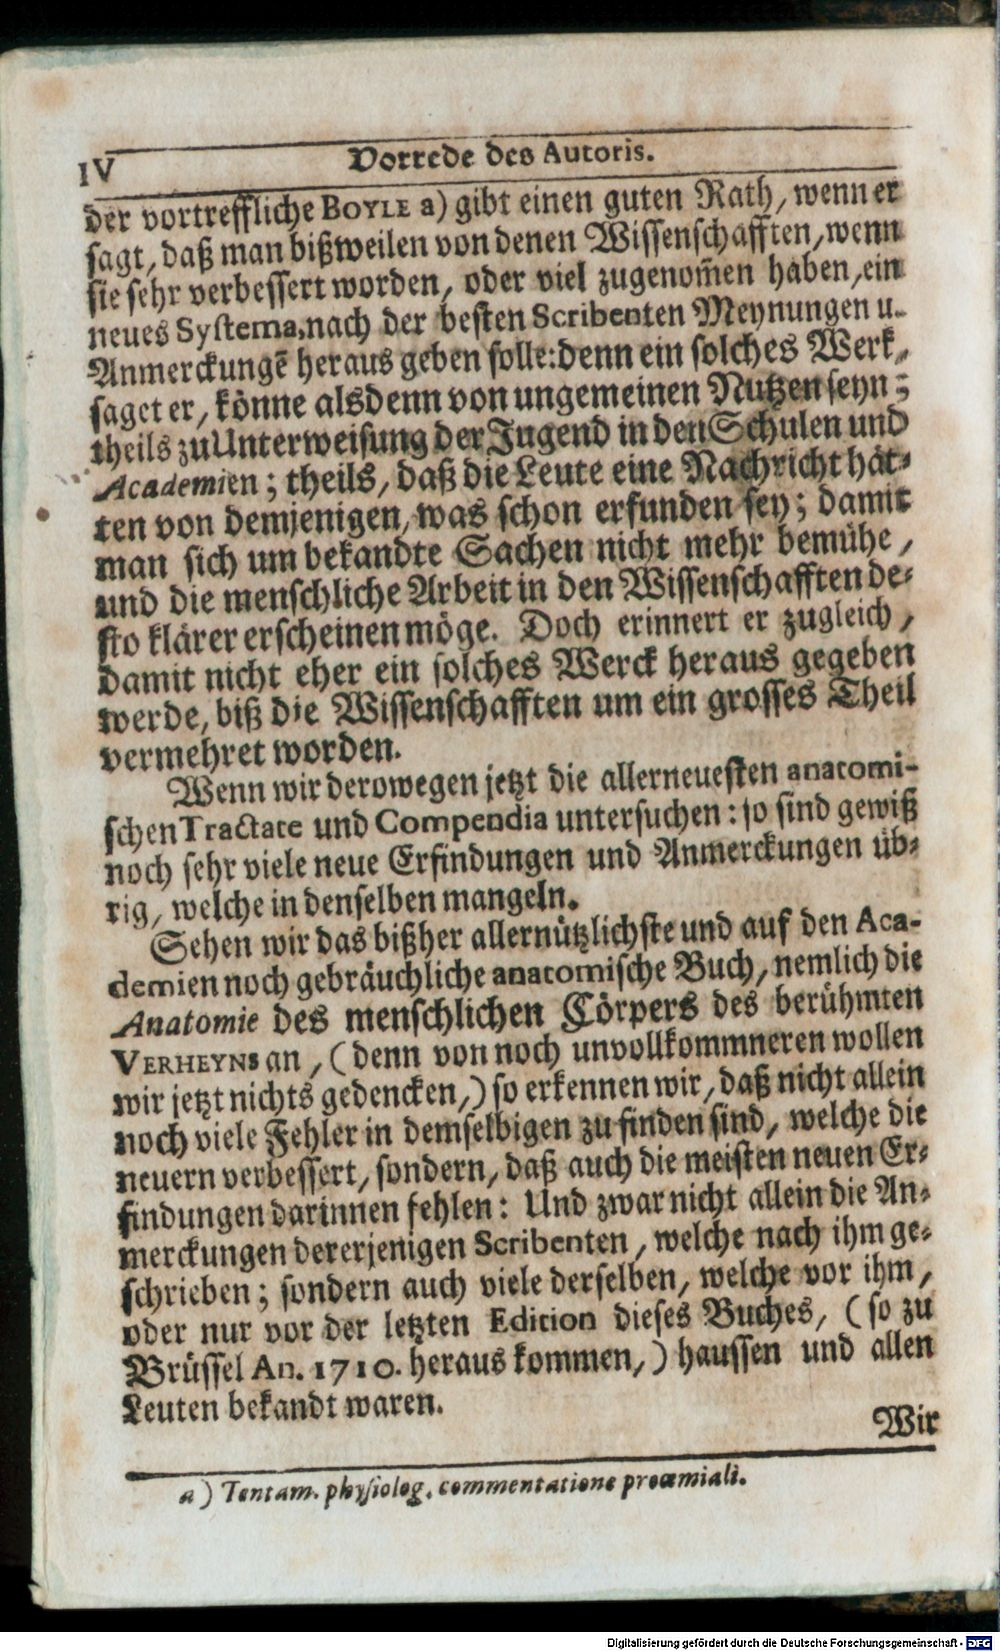 IV Vorrede des Autoris.
der vortreffliche BOYLE a) gibt einen guten Rath, wenn er
sagt, daß man bißweilen von denen Wissenschafften, wenn
sie sehr verbessert worden, oder viel zugenom̃en haben, ein
neues Systema, nach der besten Scribenten Meynungen u.
Anmerckungē heraus geben solle: denn ein solches Werk,
saget er, könne alsdenn von ungemeinen Nutzen seyn;
theils zu Unterweisung der Jugend in den Schulen und
Academien; theils, daß die Leute eine Nachricht hät-
ten von demjenigen, was schon erfunden sey; damit
man sich um bekandte Sachen nicht mehr bemühe,
und die menschliche Arbeit in den Wissenschafften de-
sto klärer erscheinen möge. Doch erinnert er zugleich,
damit nicht eher ein solches Werck heraus gegeben
werde, biß die Wissenschafften um ein grosses Theil
vermehret worden.
Wenn wir derowegen jetzt die allerneuesten anatomi-
schen Tractate und Compendia untersuchen: so sind gewiß
noch sehr viele neue Erfindungen und Anmerckungen üb-
rig, welche in denselben mangeln.
Sehen wir das bißher allernützlichste und auf den Aca-
demien noch gebräuchliche anatomische Buch, nemlich die
Anatomie des menschlichen Cörpers des berühmten
VERHEYNS an, (denn von noch unvollkommneren wollen
wir jetzt nichts gedencken,) so erkennen wir, daß nicht allein
noch viele Fehler in demselbigen zu finden sind, welche die
neuern verbessert, sondern, daß auch die meisten neuen Er-
findungen darinnen fehlen: Und zwar nicht allein die An-
merckungen dererjenigen Scribenten, welche nach ihm ge-
schrieben; sondern auch viele derselben, welche vor ihm,
oder nur vor der letzten Edition dieses Buches, (so zu
Brüssel An. 1710. heraus kommen,) haussen und allen
Leuten bekandt waren.
Wir
a) Tentam. physiolog. commentatione proœmiali.
Digitalisierung gefördert durch die Deutsche Forschungsgemeinschaft - DFG